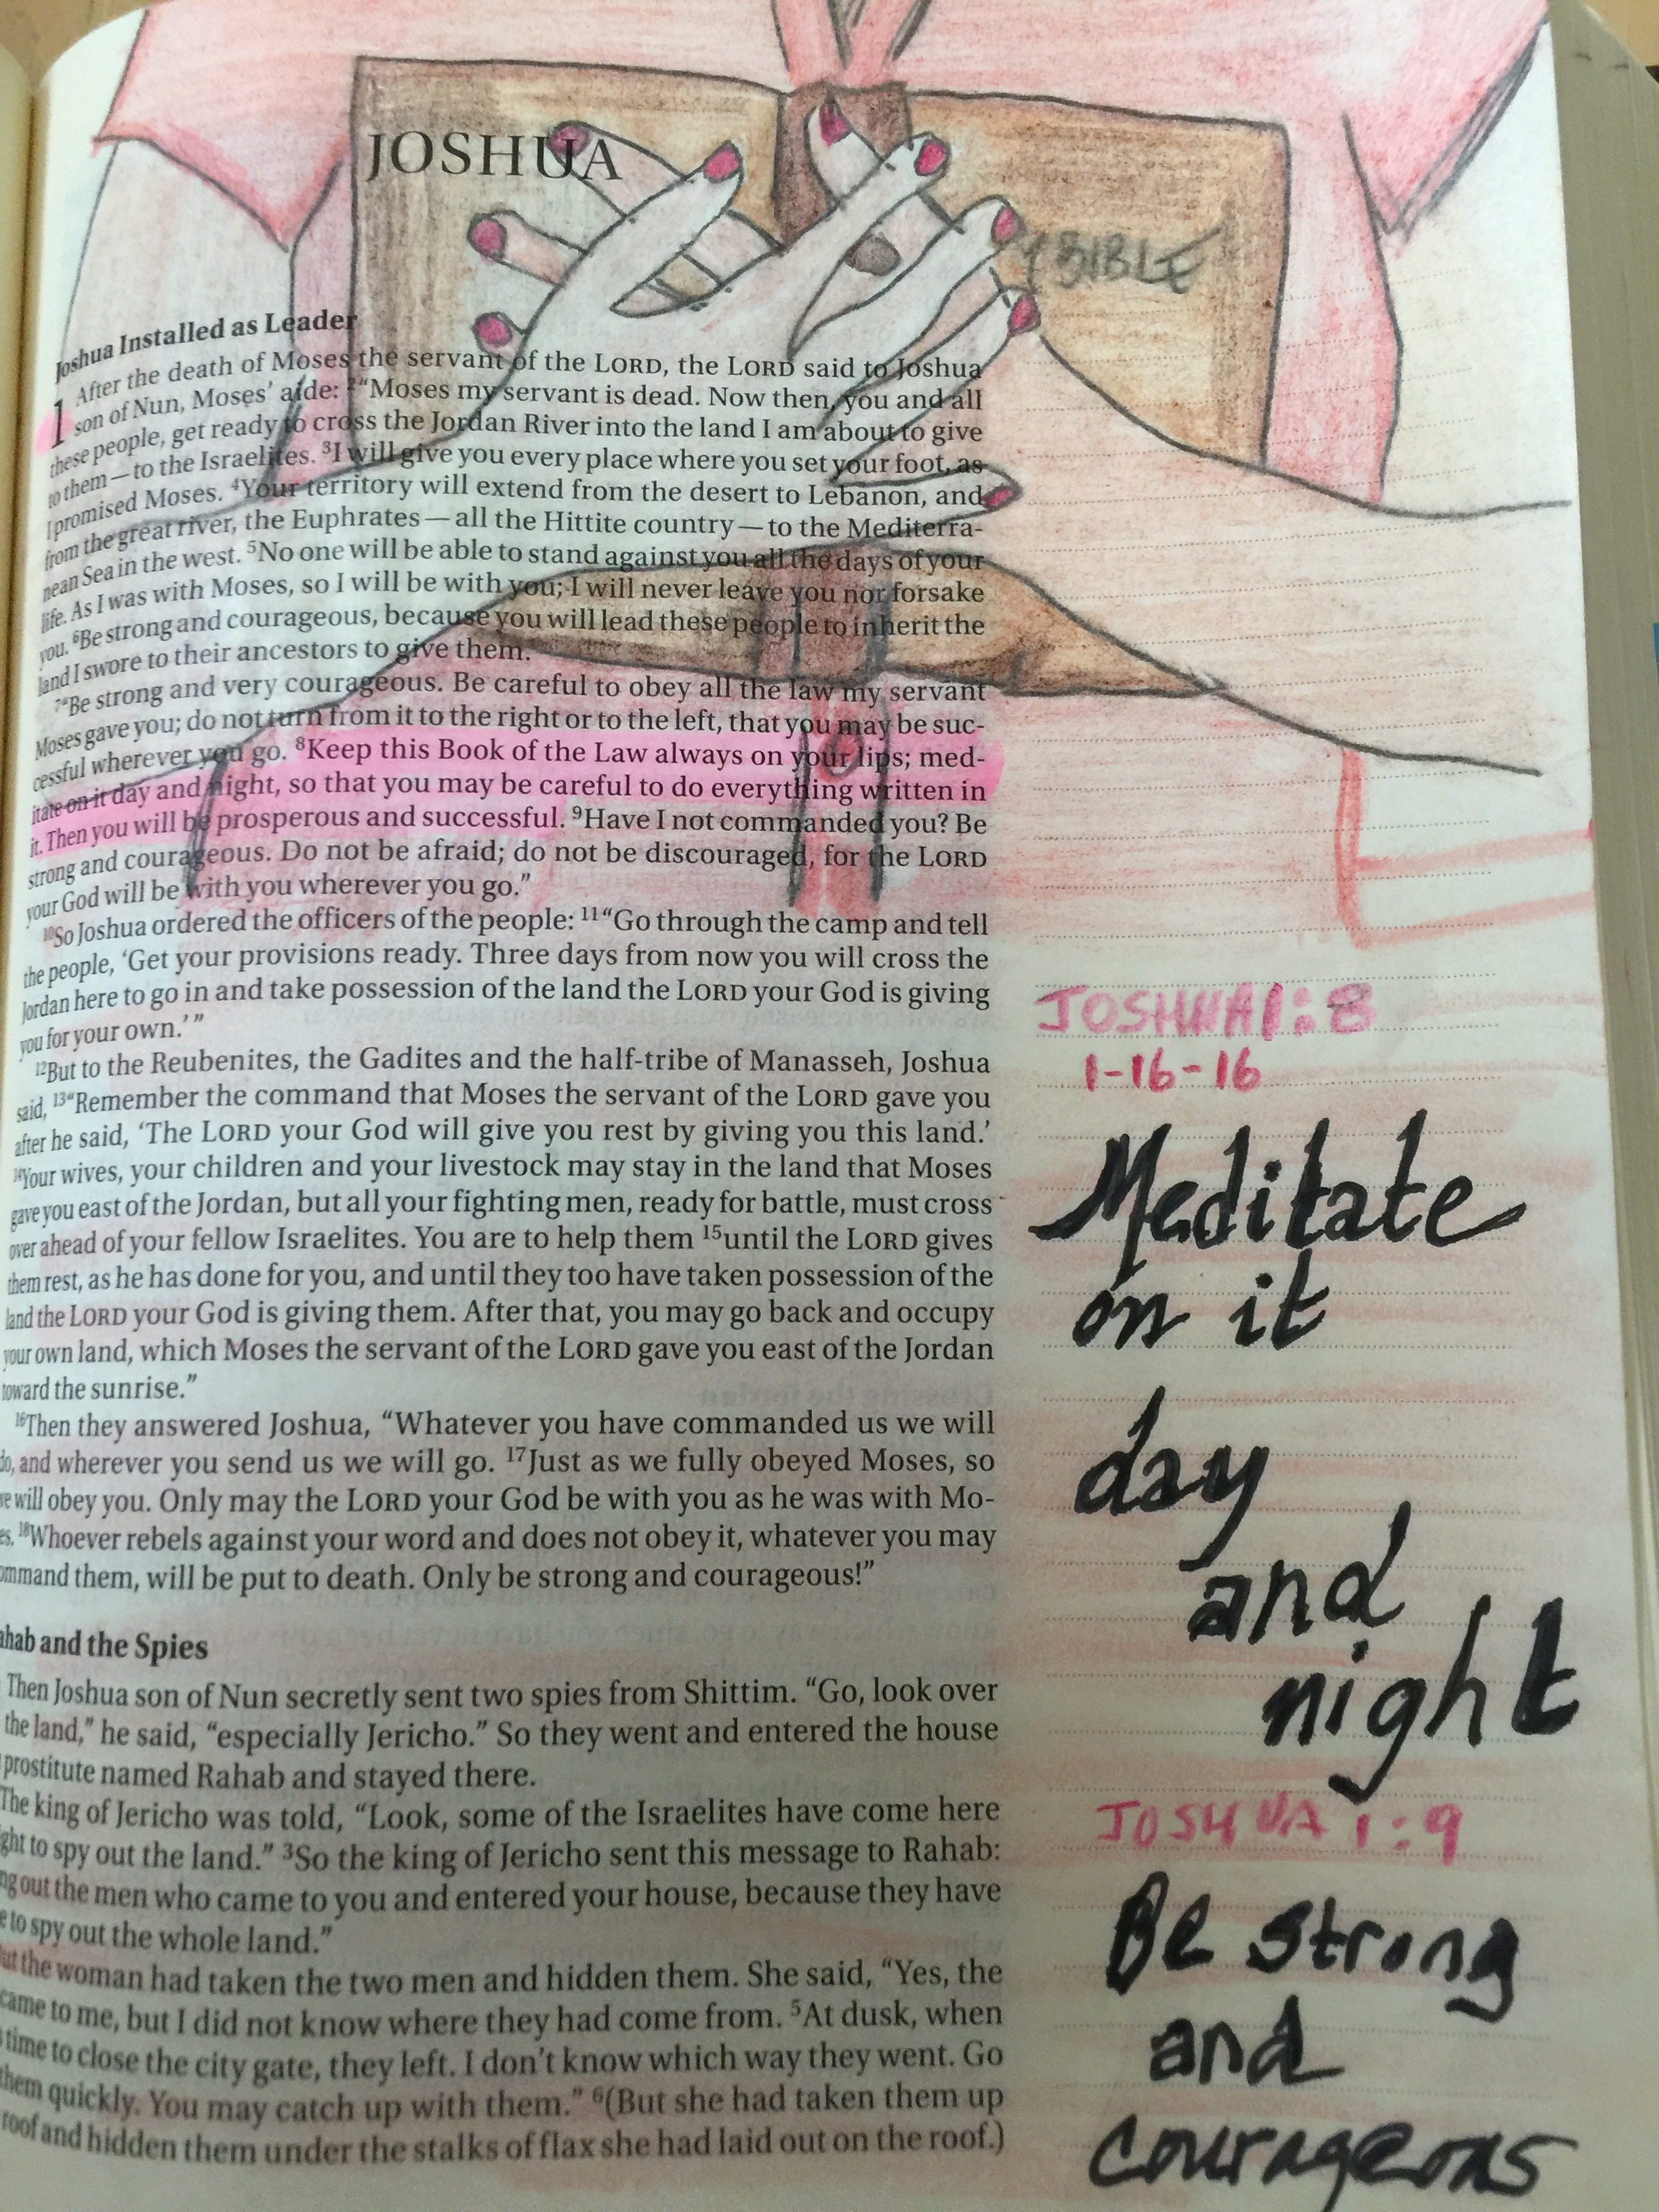 JOSHUA
BIBLE
Joshua Installed as Leader
1 After the death of Moses the servant of the LORD, the LORD said to Joshua
son of Nun, Moses' aide: 2“Moses my servant is dead. Now then, you and all
these people, get ready to cross the Jordan River into the land I am about to give
to them—to the Israelites. 3I will give you every place where you set your foot, as
I promised Moses. 4Your territory will extend from the desert to Lebanon, and
from the great river, the Euphrates—all the Hittite country—to the Mediterra-
nean Sea in the west. 5No one will be able to stand against you all the days of your
life. As I was with Moses, so I will be with you; I will never leave you nor forsake
you. 6Be strong and courageous, because you will lead these people to inherit the
land I swore to their ancestors to give them.
7“Be strong and very courageous. Be careful to obey all the law my servant
Moses gave you; do not turn from it to the right or to the left, that you may be suc-
cessful wherever you go. 8Keep this Book of the Law always on your lips; med-
itate on it day and night, so that you may be careful to do everything written in
it. Then you will be prosperous and successful. 9Have I not commanded you? Be
strong and courageous. Do not be afraid; do not be discouraged, for the LORD
your God will be with you wherever you go.”
10So Joshua ordered the officers of the people: 11“Go through the camp and tell
the people, ‘Get your provisions ready. Three days from now you will cross the
Jordan here to go in and take possession of the land the LORD your God is giving
you for your own.’”
12But to the Reubenites, the Gadites and the half-tribe of Manasseh, Joshua
said, 13“Remember the command that Moses the servant of the LORD gave you
after he said, ‘The LORD your God will give you rest by giving you this land.’
14Your wives, your children and your livestock may stay in the land that Moses
gave you east of the Jordan, but all your fighting men, ready for battle, must cross
over ahead of your fellow Israelites. You are to help them 15until the LORD gives
them rest, as he has done for you, and until they too have taken possession of the
land the LORD your God is giving them. After that, you may go back and occupy
your own land, which Moses the servant of the LORD gave you east of the Jordan
toward the sunrise.”
16Then they answered Joshua, “Whatever you have commanded us we will
do, and wherever you send us we will go. 17Just as we fully obeyed Moses, so
we will obey you. Only may the LORD your God be with you as he was with Mo-
es. 18Whoever rebels against your word and does not obey it, whatever you may
ommand them, will be put to death. Only be strong and courageous!”
ahab and the Spies
Then Joshua son of Nun secretly sent two spies from Shittim. “Go, look over
the land,” he said, “especially Jericho.” So they went and entered the house
prostitute named Rahab and stayed there.
The king of Jericho was told, “Look, some of the Israelites have come here
ght to spy out the land.” 3So the king of Jericho sent this message to Rahab:
ng out the men who came to you and entered your house, because they have
e to spy out the whole land.”
ut the woman had taken the two men and hidden them. She said, “Yes, the
came to me, but I did not know where they had come from. 5At dusk, when
time to close the city gate, they left. I don't know which way they went. Go
them quickly. You may catch up with them.” 6(But she had taken them up
roof and hidden them under the stalks of flax she had laid out on the roof.)
JOSHUA 1:8
1-16-16
Meditate
on it
day
and
night
JOSHUA 1:9
Be strong
and
courageous